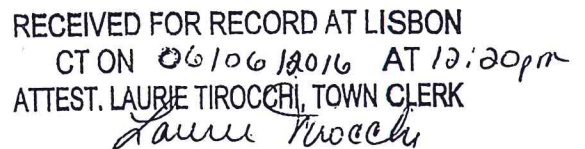 RECEIVED FOR RECORD AT LISBON
CT ON 06/06/2016 AT 12:20pm
ATTEST. LAURIE TIROCCHI, TOWN CLERK
Laurie Tirocchi